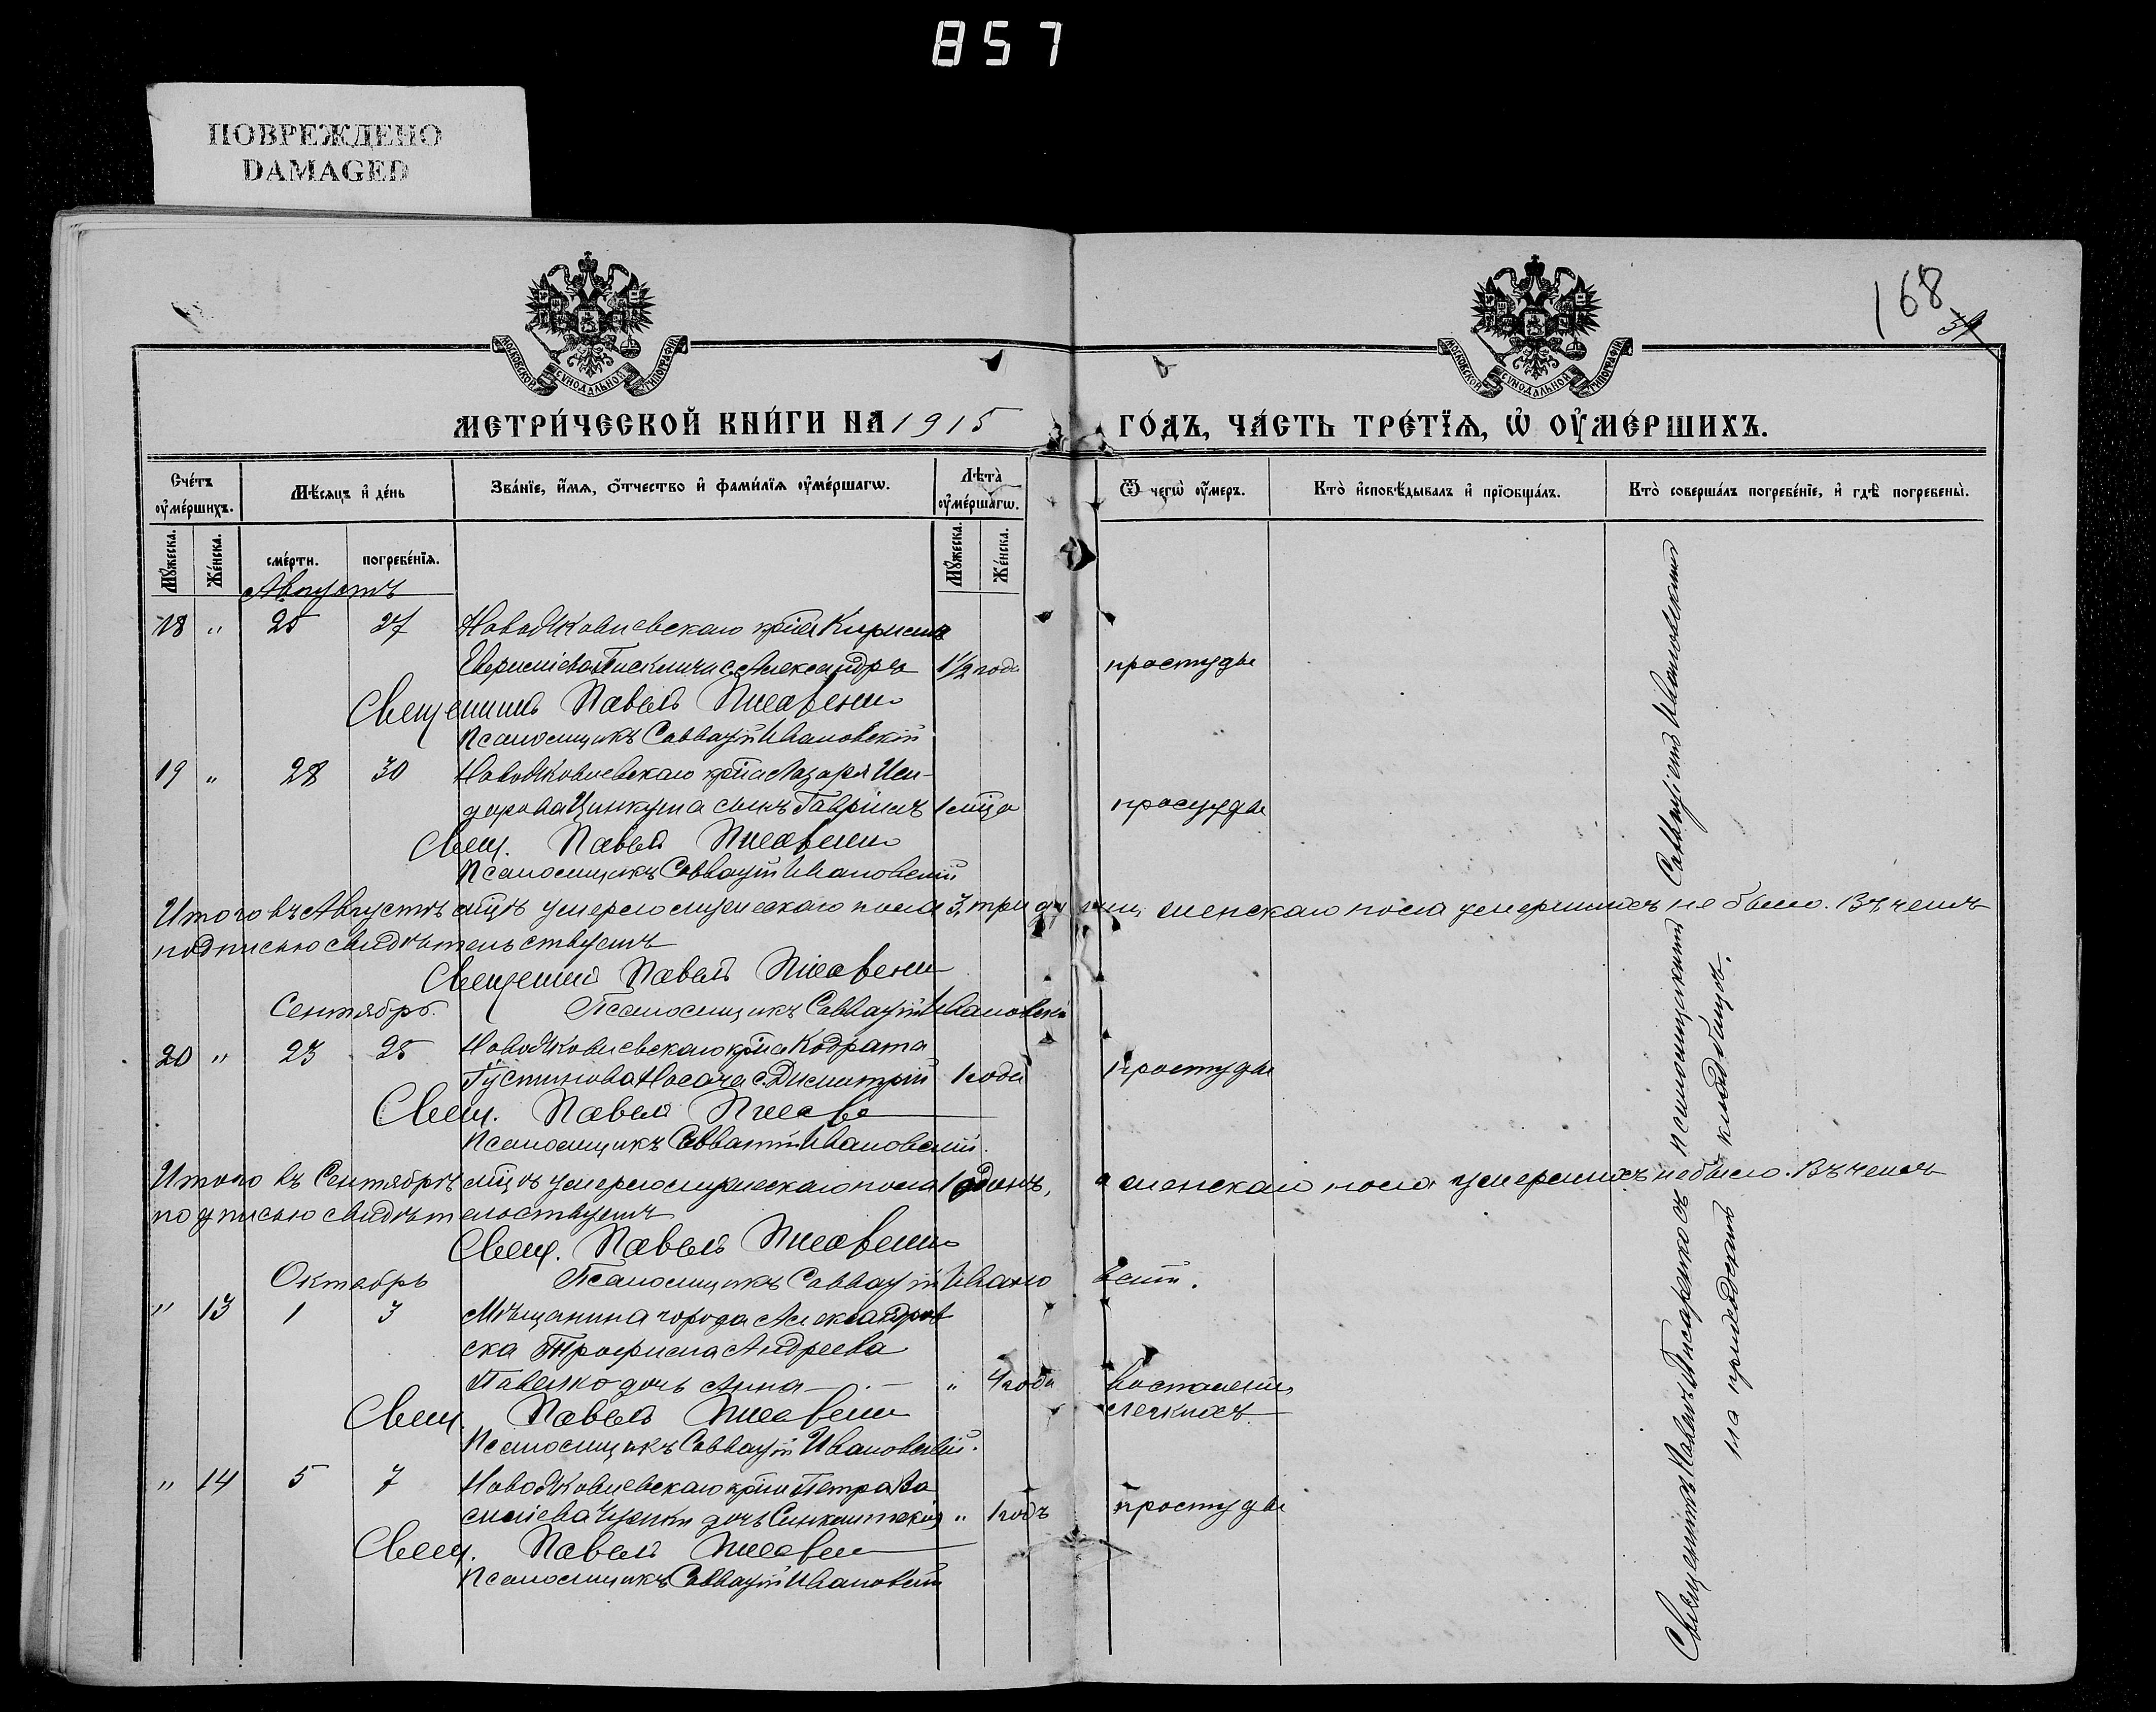 857
ПОВРЕЖДЕНО
DAMAGED
168
МОСКОВСКОЙ СУНОДАЛЬНОЙ ТИПОГРАФІИ
МОСКОВСКОЙ СУНОДАЛЬНОЙ ТИПОГРАФІИ
МЕТРИ́ЧЕСКОЙ КНИ́ГИ НА 1915 ГО́ДЪ, ЧА́СТЬ ТРЕ́ТЇѦ, Ѡ҆ ОУ҆МЕ́РШИХЪ.
Сче́тъ оу҆ме́ршихъ.
Мѣ́сяцъ и҆ де́нь
Зва́нїе, и҆́мѧ, ѻ҆́тчество и҆ фами́лїѧ оу҆ме́ршагѡ.
Лѣта̀ оу҆ме́ршагѡ.
Ѿ чегѡ̀ оу҆́меръ.
Кто̀ и҆сповѣ́дывалъ и҆ прїѻбща́лъ.
Кто̀ соверша́лъ погребе́нїе, и҆ гдѣ̀ погребены̀.
Мꙋ́жеска.
Же́нска.
сме́рти.
погребе́нїѧ.
Мꙋ́жеска.
Же́нска.
Августъ
18 " 25 27 НовоЯковлевскаго кр̃на Кирилла
с. Александръ 1½ года простуды
Священникъ Павелъ Писаренко
Псаломщикъ Савватій Ивановскій
19 " 28 30 НовоЯковлевскаго кр̃на Лазаря Иси-
дорова Цинкуша сынъ Гавріилъ 1 м̃ца простуды
Свящ. Павелъ Писаренко
Псаломщикъ Савватій Ивановскій
Итого въ Августѣ м̃цѣ умерло мужескаго пола 3, три души, женскаго пола умершихъ не было. Въ чемъ
подписью свидѣтельствуемъ
Священникъ Павелъ Писаренко
Сентябрь. Псаломщикъ Савватій Ивановскій
20 " 23 25 НовоЯковлевскаго кр̃на Кодрата
Густинова Носача с. Димитрій 1 года простуды
Свящ. Павелъ Писаре
Псаломщикъ Савватій Ивановскій.
Итого въ Сентябрѣ м̃цѣ умерло мужескаго пола 1 одинъ, а женскаго пола умершихъ не было. Въ чемъ
подписью свидѣтельствуемъ
Свящ. Павелъ Писаренко
Октябрь Псаломщикъ Савватій Ивановскій.
" 13 1 3 Мѣщанина города Александров
ска Трофима Андреева
Павленко дочь Анна " 4 года воспаленія
легкихъ
Свящ. Павелъ Писаренко
Псаломщикъ Савватій Ивановскій.
" 14 5 7 НовоЯковлевскаго кр̃на Петра Ва
силіева дочь Синклитикія " 1 годъ простуды
Свящ. Павелъ Писаре
Псаломщикъ Савватій Ивановскій
Священникъ Павелъ Писаренко съ псаломщикомъ Савватіемъ Ивановскимъ
на приходскомъ кладбищѣ.